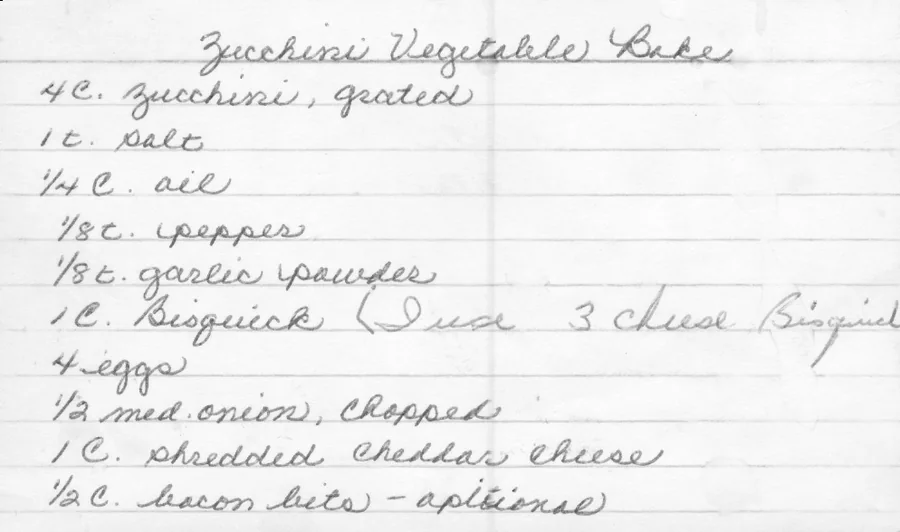 Zucchini Vegetable Bake
4 C. zucchini, grated
1 t. salt
1/4 C. oil
1/8 t. pepper
1/8 t. garlic powder
1 C. Bisquick (I use 3 cheese Bisquick
4 eggs
1/2 med. onion, chopped
1 C. shredded cheddar cheese
1/2 C. bacon bits - optional